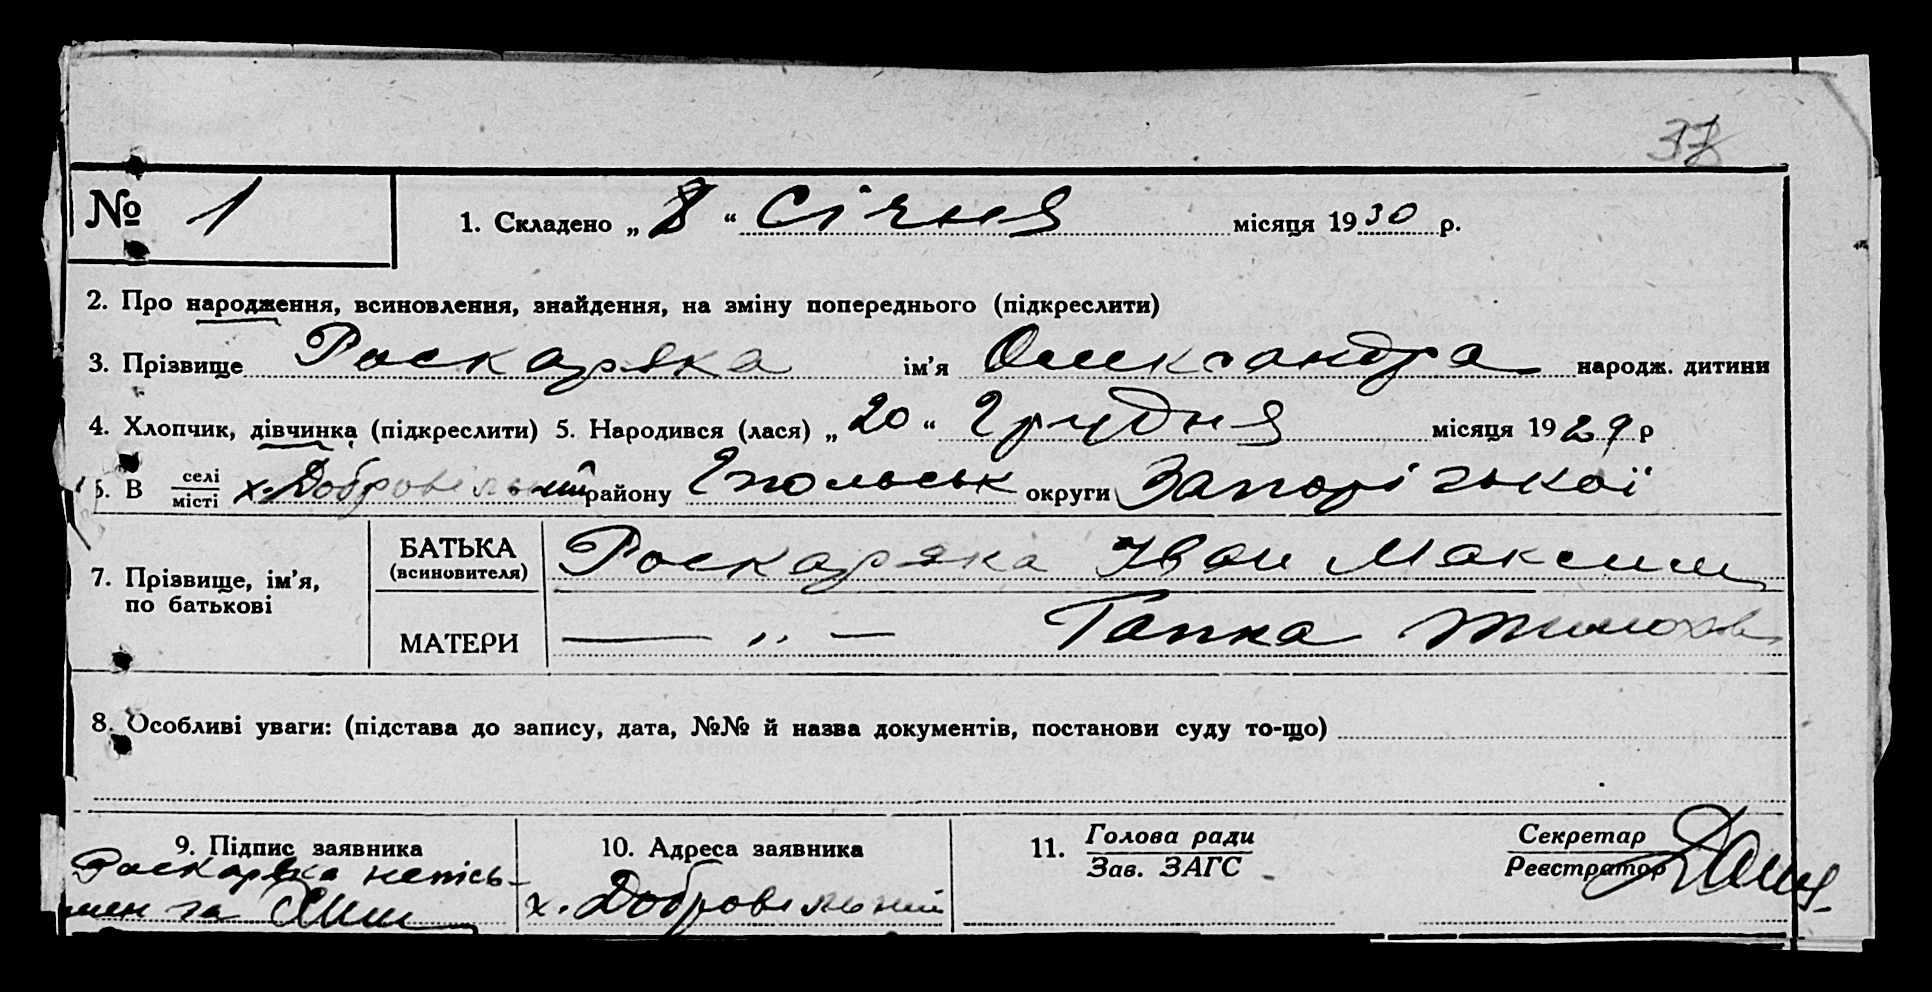 37
№ 1
1. Складено „ 8 “ Січня місяця 1930 р.
2. Про народження, всиновлення, знайдення, на зміну попереднього (підкреслити)
3. Прізвище Роскаряка ім'я Олександра народж. дитини
4. Хлопчик, дівчинка (підкреслити) 5. Народився (лася) „ 20 “ Грудня місяця 1929 р
6. В селі/місті х. Добровільний району округи Запорізької
7. Прізвище, ім'я, по батькові
БАТЬКА (всиновителя) Роскаряка Іван Максим
МАТЕРИ — „ — Гапка
8. Особливі уваги: (підстава до запису, дата, №№ й назва документів, постанови суду то-що)
9. Підпис заявника
Роскаряка непись-
мен за
10. Адреса заявника
х. Добровільний
11. Голова ради
Зав. ЗАГС
Секретар
Реєстратор